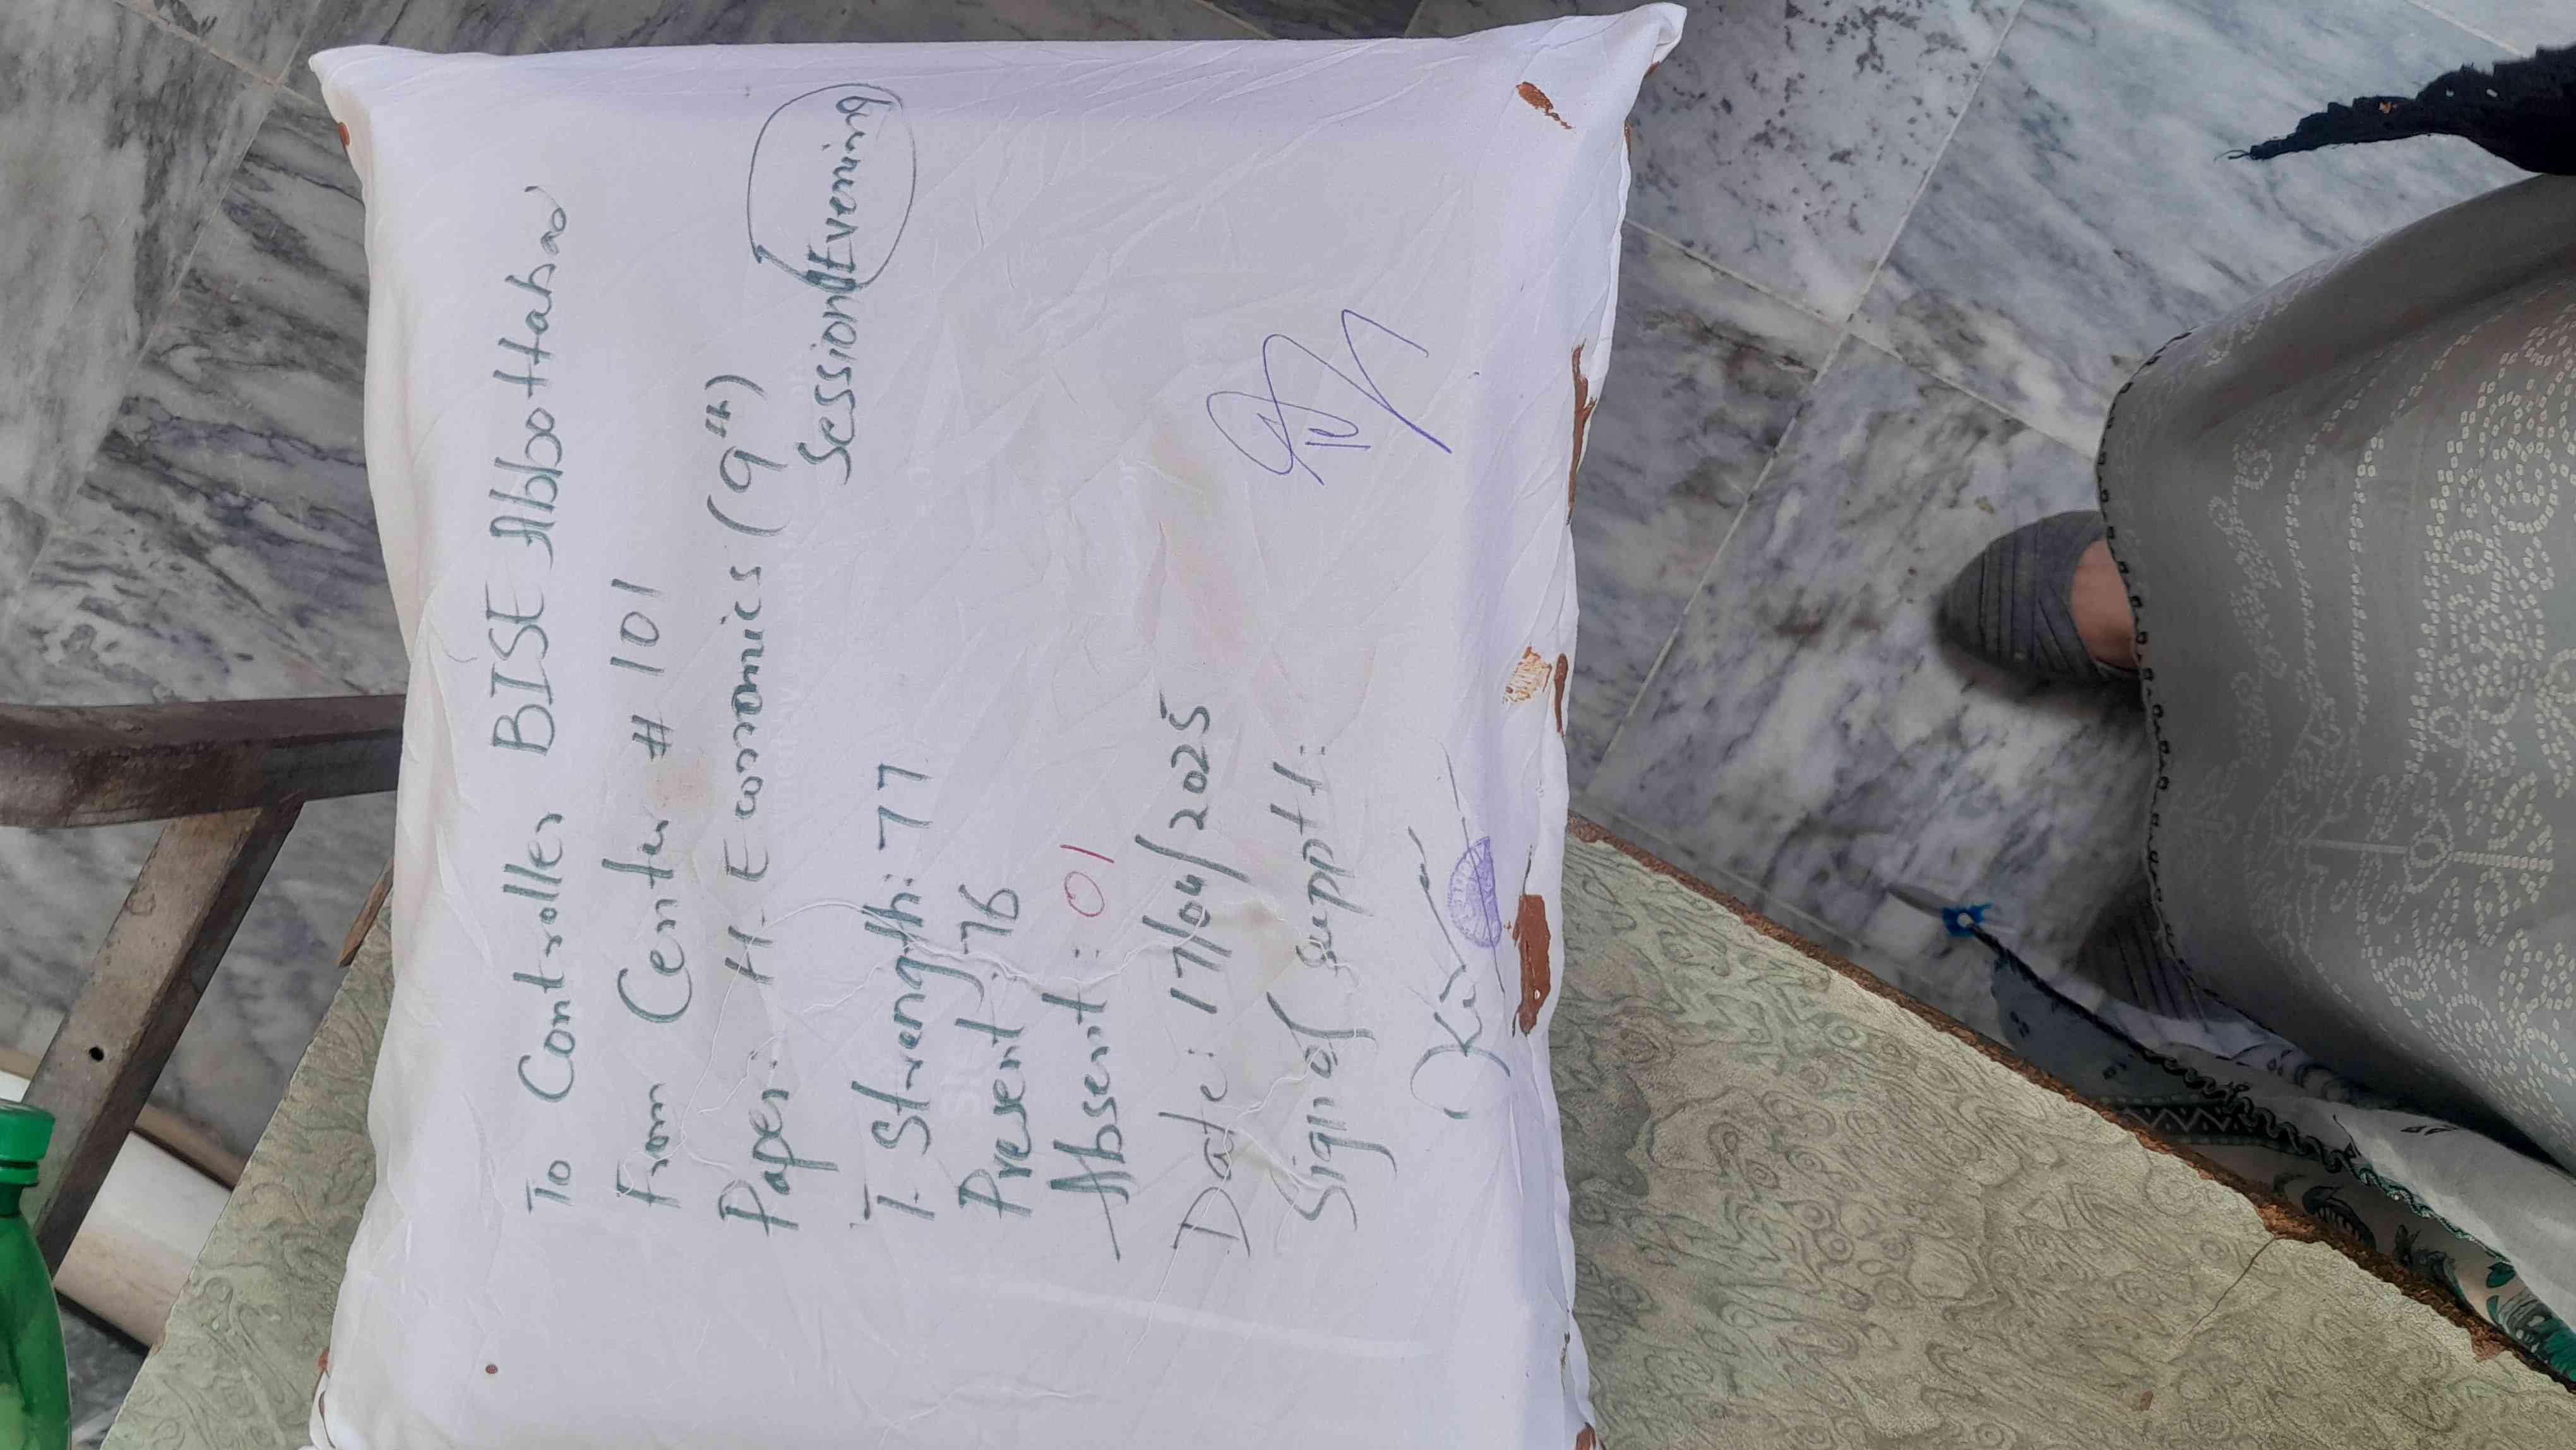 To Controller BISE Abbottabad
From Center # 101
Paper: H. Economics (9th)
Session Evening
T. Strength: 77
Present: 76
Absent: 01
Date: 17/04/2025
Sign of Suptt: